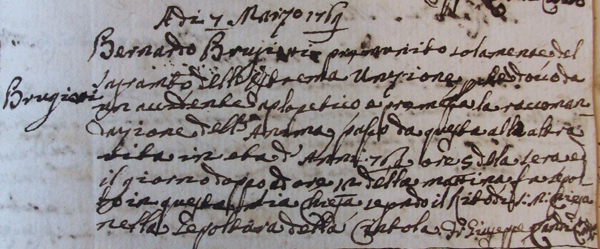 A di 7 Marzo 1769
Brugieri
Bernardo Brugieri premunito solamente del
sagramto dell' Estrema Unzione
un accidente apopletico e premessa la racoman
dazione dell' Anima passò da questa all altra
vita in età d' Anni 76 ore 5 della sera e
il giorno dopo ad ore 12 della mattina fu sepol
to in questa mia Chiesa secondo il Rito di S. M. Chiesa
nella Sepoltura della Cintola. Giuseppe